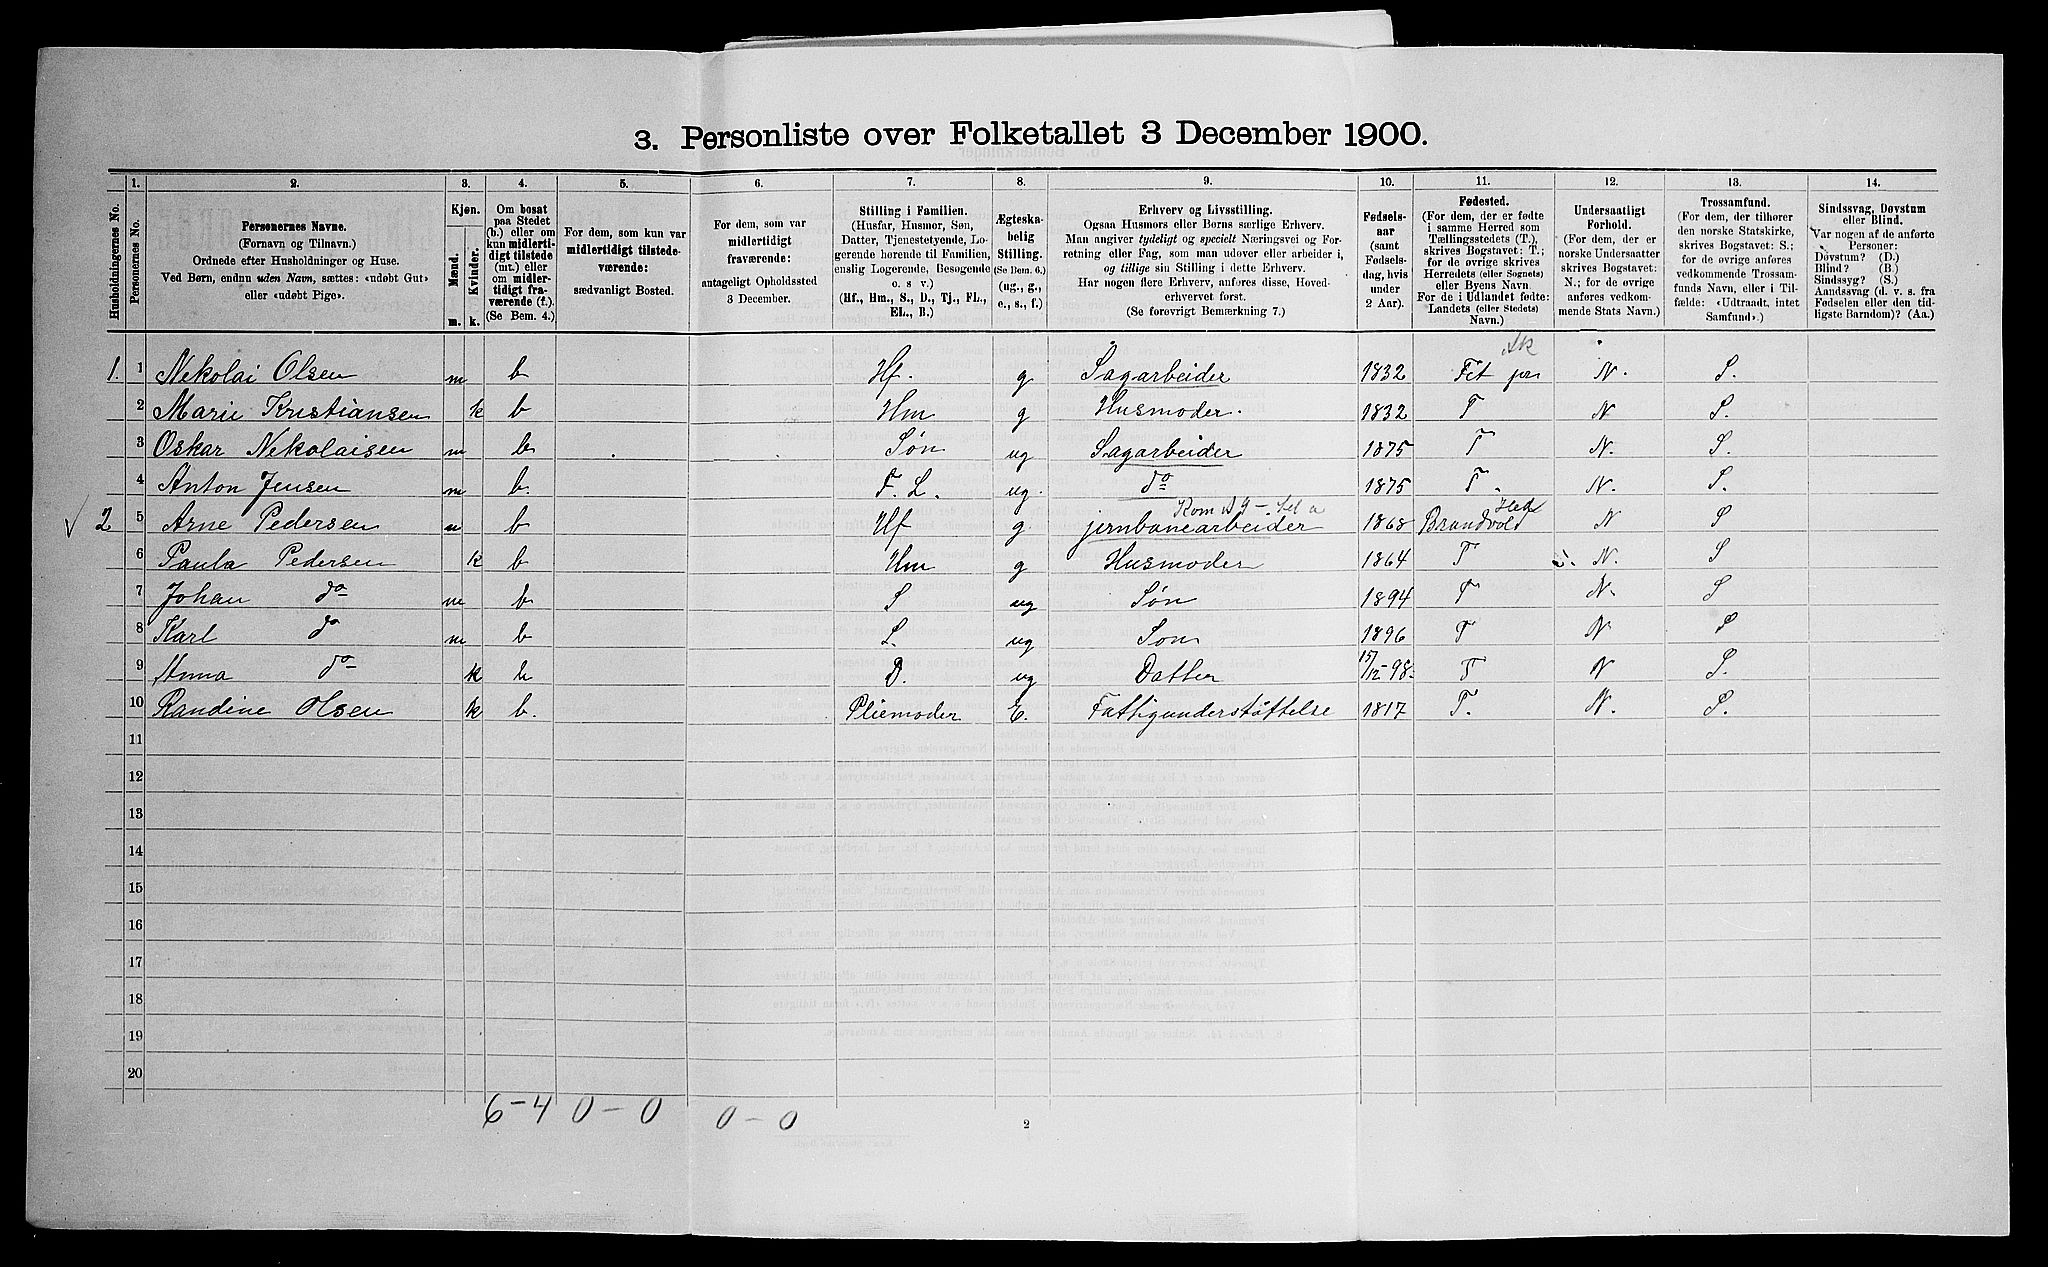 3. Personliste over Folketallet 3 December 1900.
Husholdningernes No.
1. Personernes No.
2. Personernes Navne. (Fornavn og Tilnavn.) Ordnede efter Husholdninger og Huse. Ved Børn, endnu uden Navn, sættes: «udøbt Gut» eller «udøbt Pige».
3. Kjøn. Mænd. m. Kvinder. k.
4. Om bosat paa Stedet (b.) eller om kun midlertidigt tilstede (mt.) eller om midlertidigt fraværende (f.). (Se Bem. 4.)
5. For dem, som kun var midlertidigt tilstedeværende: sædvanligt Bosted.
6. For dem, som var midlertidigt fraværende: antageligt Opholdssted 3 December.
7. Stilling i Familien. (Husfar, Husmor, Søn, Datter, Tjenestetyende, Logerende hørende til Familien, enslig Logerende, Besøgende o. s v.) (Hf., Hm., S., D., Tj., FL., EL., B.)
8. Ægteskabelig Stilling. (Se Bem. 6.) (ug., g., e., s., f.)
9. Erhverv og Livsstilling. Ogsaa Husmors eller Børns særlige Erhverv. Man angiver tydeligt og specielt Næringsvei og Forretning eller Fag, som man udover eller arbeider i, og tillige sin Stilling i dette Erhverv. Har nogen flere Erhverv, anføres disse, Hovederhvervet først. (Se forøvrigt Bemærkning 7.)
10. Fødselsaar (samt Fødselsdag, hvis under 2 Aar).
11. Fødested. (For dem, der er fødte i samme Herred som Tællingsstedets (T.), skrives Bogstavet: T.; for de øvrige skrives Herredets (eller Sognets) eller Byens Navn. For de i Udlandet fødte: Landets (eller Stedets) Navn.)
12. Undersaatligt Forhold. (For dem, der er norske Undersaatter skrives Bogstavet: N.; for de øvrige anføres vedkommende Stats Navn.)
13. Trossamfund. (For dem, der tilhører den norske Statskirke, skrives Bogstavet: S.; for de øvrige anføres vedkommende Trossamfunds Navn, eller i Tilfælde: «Udtraadt, intet Samfund».)
14. Sindssvag, Døvstum eller Blind. Var nogen af de anførte Personer: Døvstum? (D.) Blind? (B.) Sindssyg? (S.) Aandssvag (d. v. s. fra Fødselen eller den tidligste Barndom)? (Aa.)
1. 1 Nekolai Olsen m b Hf. g Sagarbeider 1832 Fet N. S.
2 Marie Kristiansen k b Hm g Husmoder. 1832 T N S.
3 Oskar Nekolaisen m b Søn ug Sagarbeider 1875 T N. S.
4 Anton Jensen m b. F. L. ug. do 1875 T. N. S.
2 5 Arne Pedersen m b Hf g. jernbanearbeider 1868 Brandvold Hed N S
6 Paula Pedersen k b Hm g Husmoder 1864 T N. S
7 Johan do m b S ug Søn 1894 T N. S
8 Karl do m b S. ug Son 1896 T N S
9 Anna do k b D. ug Datter 15/12-98. T N S.
10 Randine Olsen k b. Pliemoder E. Fattigunderstøttelse 1817 T. N. S.
11
12
13
14
15
16
17
18
19
20
6-4 0-0 0-0
2